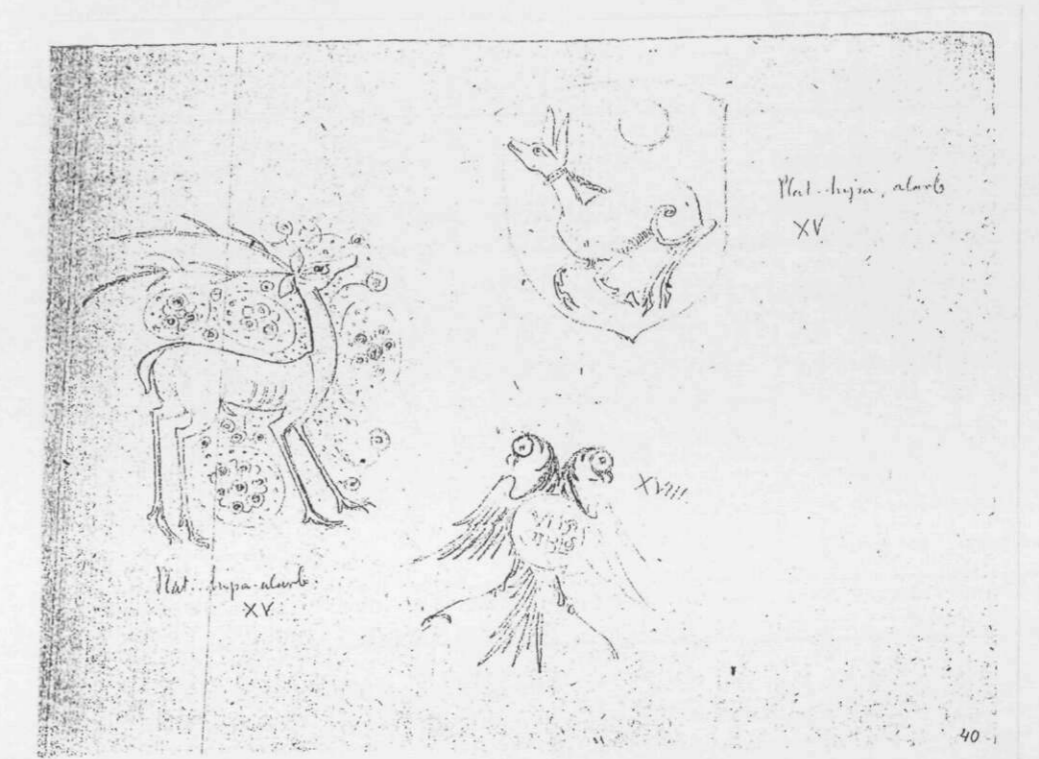 Plat. hispa. alarb
XV
XVIII
Plat. hispa-alarb.
XV
40